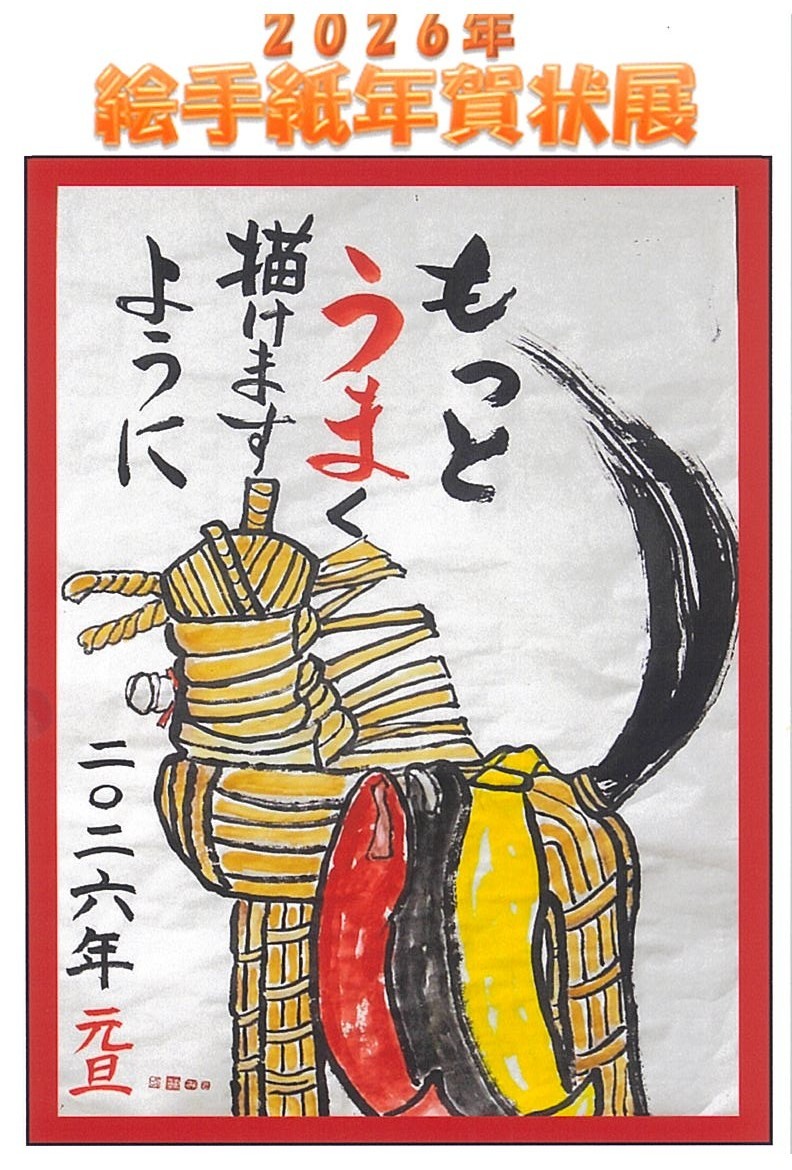 2026年
絵手紙年賀状展
もっと
うまく
描けます
ように
二〇二六年 元旦